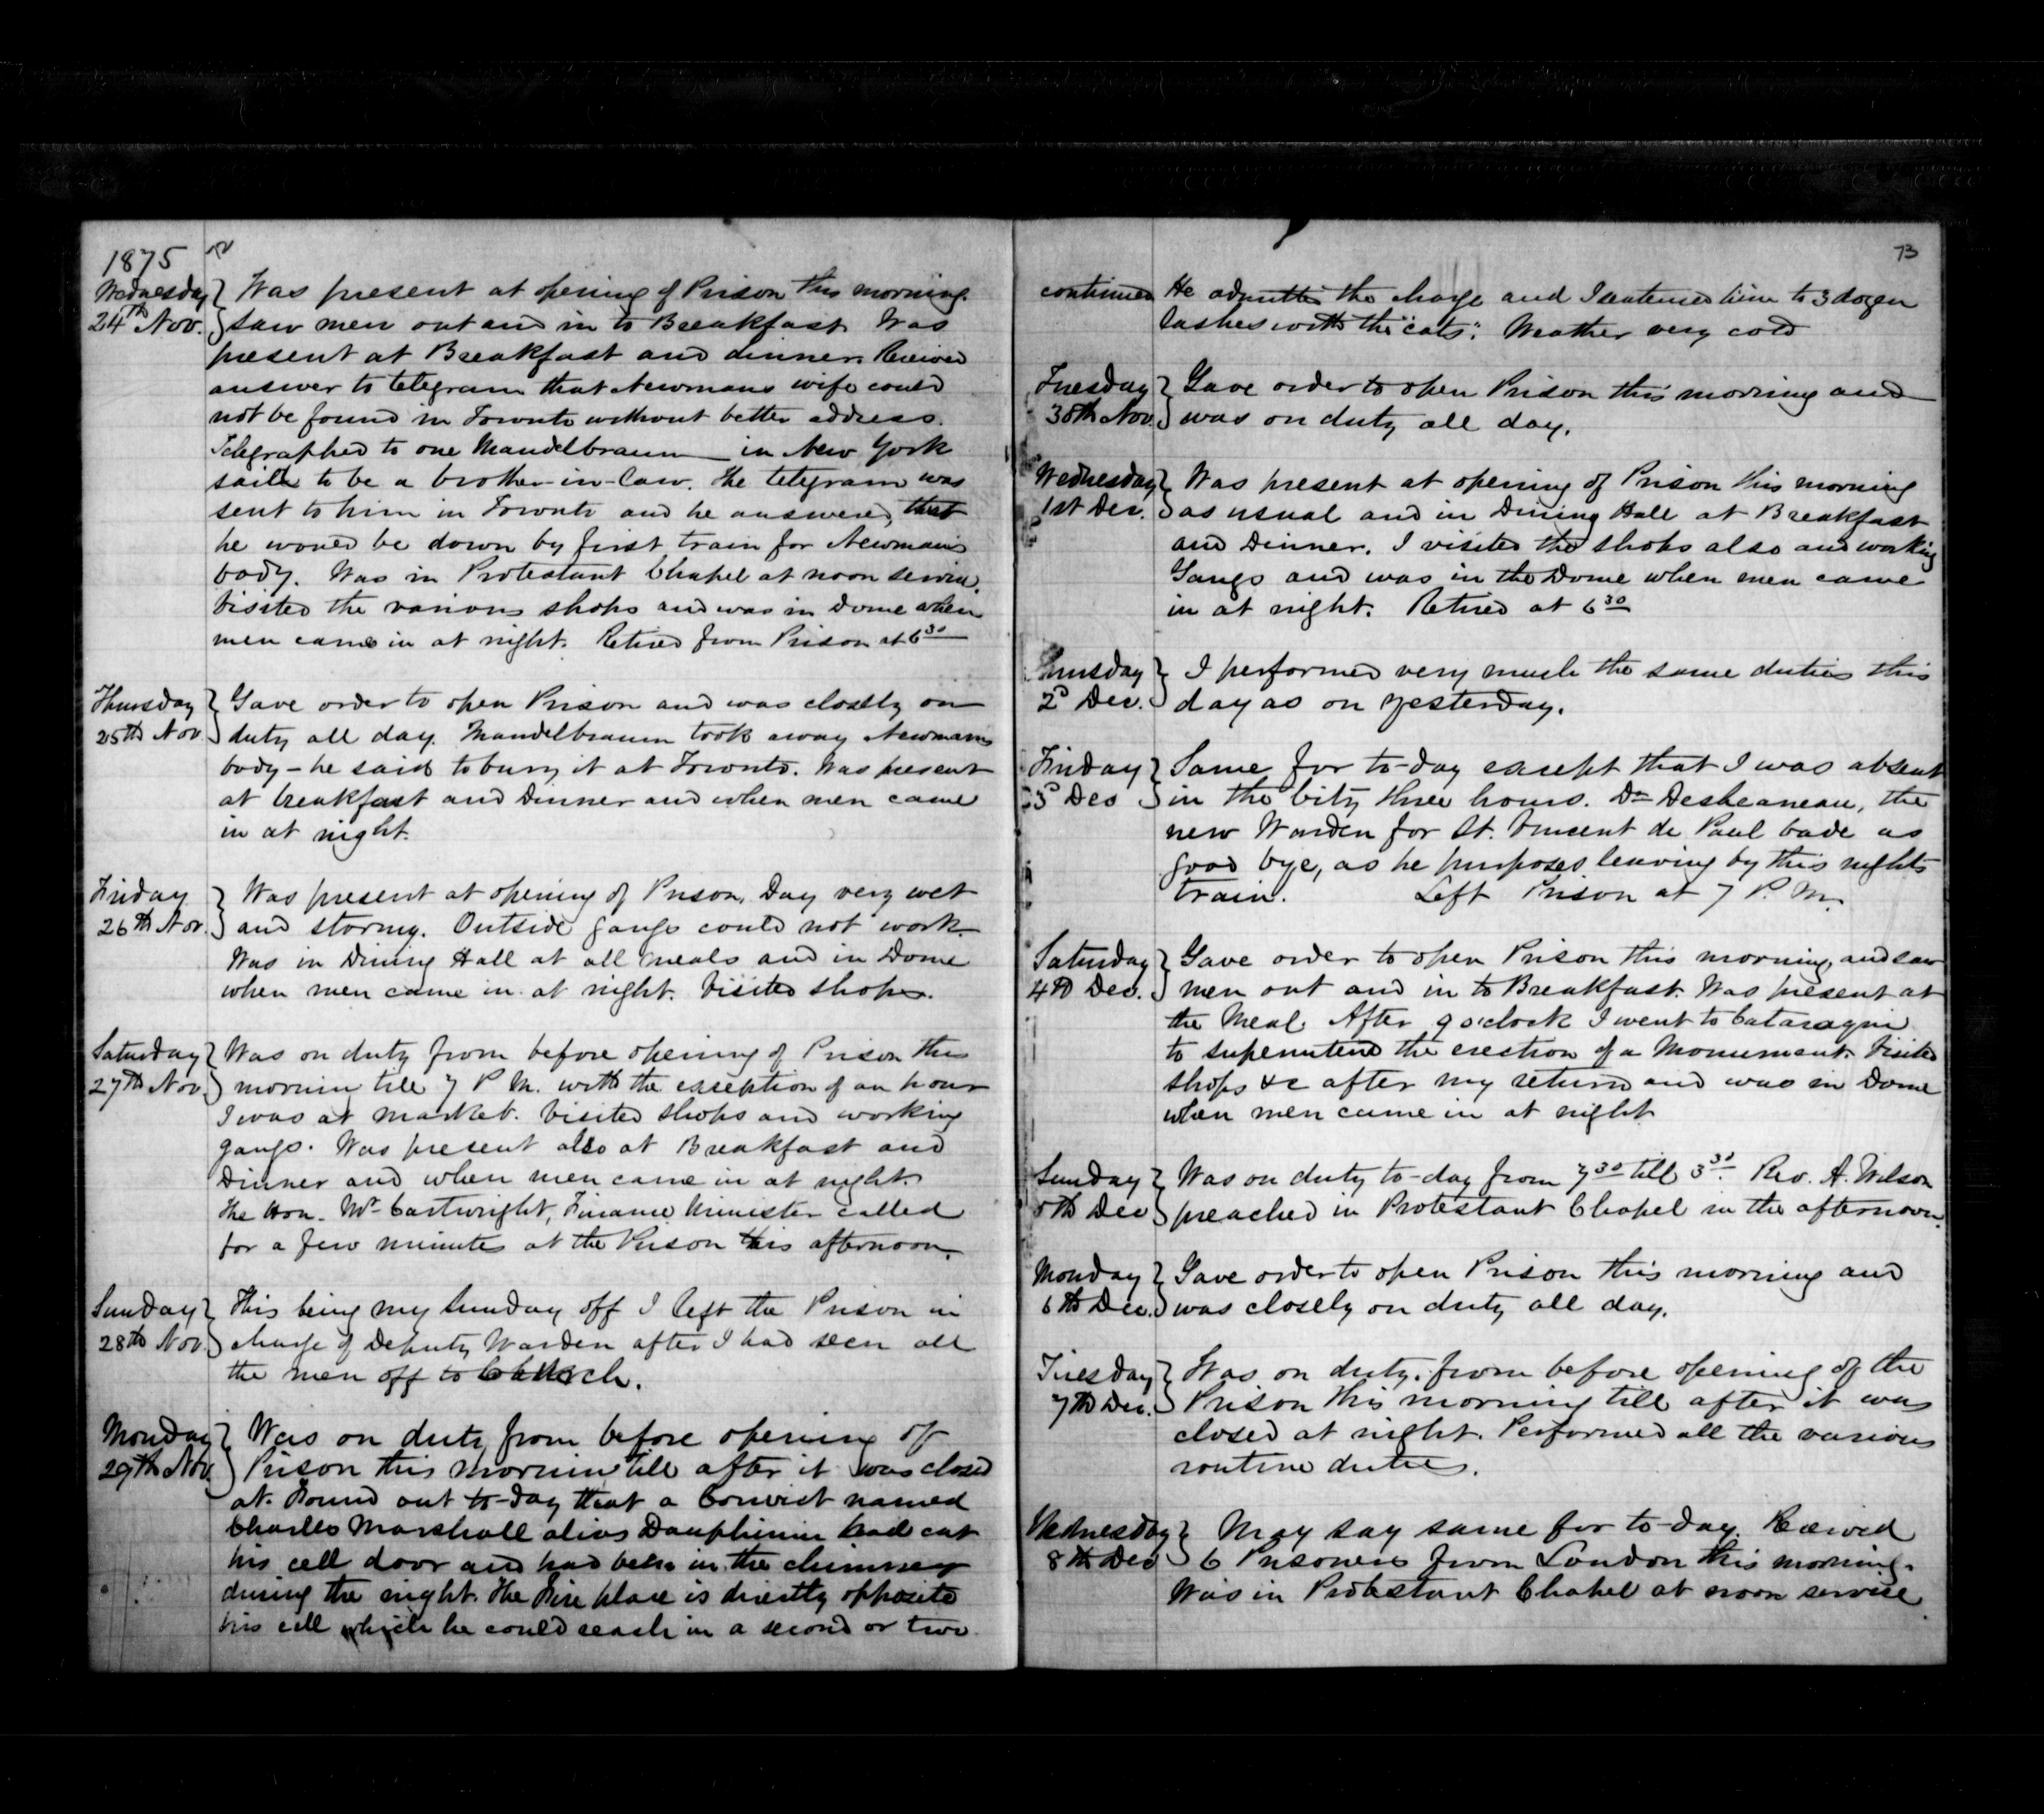 1875
Wednesday 24th Nov. Was present at opening of Prison this morning.
saw men out and in to Breakfast Was
present at Breakfast and dinner. Received
answer to telegram that Newmans wife could
not be found in Toronto without better address.
Telegraphed to one Mandelbraum in New York
said to be a brother-in-law. The telegram was
sent to him in Toronto and he answered, that
he would be down by first train for Newman's
body. Was in Protestant Chapel at noon service.
Visited the various shops and was in Dome when
men came in at night. Retired from Prison at 6 30
Thursday 25th Nov. Gave order to open Prison and was closely on
duty all day. Mandelbraum took away Newmans
body - he said to bury it at Toronto. Was present
at breakfast and Dinner and when men came
in at night.
Friday 26th Nov. Was present at opening of Prison. Day very wet
and stormy. Outside gangs could not work.
Was in Dining Hall at all meals and in Dome
when men came in at night. Visited shops.
Saturday 27th Nov. Was on duty from before opening of Prison this
mornin till 7 P.M. with the exception of an hour
I was at market. Visited shops and working
gangs. Was present also at Breakfast and
Dinner and when men came in at night.
The Hon. Mr Cartwright, Finance Minister called
for a few minutes at the Prison this afternoon.
Sunday 28th Nov. This being my Sunday off I left the Prison in
charge of Deputy Warden after I had seen all
the men off to Church.
Monday 29th Nov. Was on duty from before opening of
Prison this mornin till after it was closed
at. Found out to-day that a Convict named
Charles Marshall alias Dauphinin had cut
his cell door and had been in the chimney
during the night. The Fire place is directly opposite
his cell which he could reach in a second or two.
73
continued He admitted the charge and I sentenced him to 3 dozen
lashes with the "cats". Weather very cold
Tuesday 30th Nov. Gave order to open Prison this morning and
was on duty all day.
Wednesday 1st Dec. Was present at opening of Prison this morning
as usual and in Dining Hall at Breakfast
and Dinner. I visited the shops also and working
Gangs and was in the Dome when men came
in at night. Retired at 6 30
Thursday 2d Dec. I performed very much the same duties this
day as on yesterday.
Friday 3d Dec Same for to-day except that I was absent
in the City three hours. Dr Desheaneau, the
new Warden for St. Vincent de Paul bade us
good bye, as he purposes leaving by this nights
train. Left Prison at 7 P.M.
Saturday 4th Dec. Gave order to open Prison this morning, and saw
men out and in to Breakfast. Was present at
the Meal. After 9 o'clock I went to Cataraqui
to superintend the erection of a Monument. Visited
shops &c after my return and was in Dome
when men came in at night.
Sunday 5th Dec Was on duty to-day from 7 30 till 3 30. Rev. A. Wilson
preached in Protestant Chapel in the afternoon.
Monday 6th Dec. Gave order to open Prison this morning and
was closely on duty all day.
Tuesday 7th Dec. Was on duty from before opening of the
Prison this morning till after it was
closed at night. Performed all the various
routine duties.
Wednesday 8th Dec May say same for to-day. Received
6 Prisoners from London this morning.
Was in Protestant Chapel at noon service.